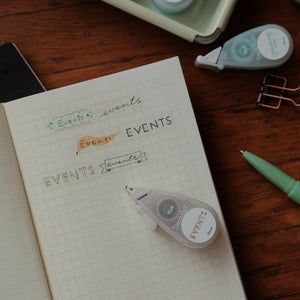 Events events
Events EVENTS
EVENTS events
EVENTS